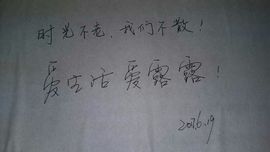 时光不老,我们不散!
爱生活爱露露!
2016.19